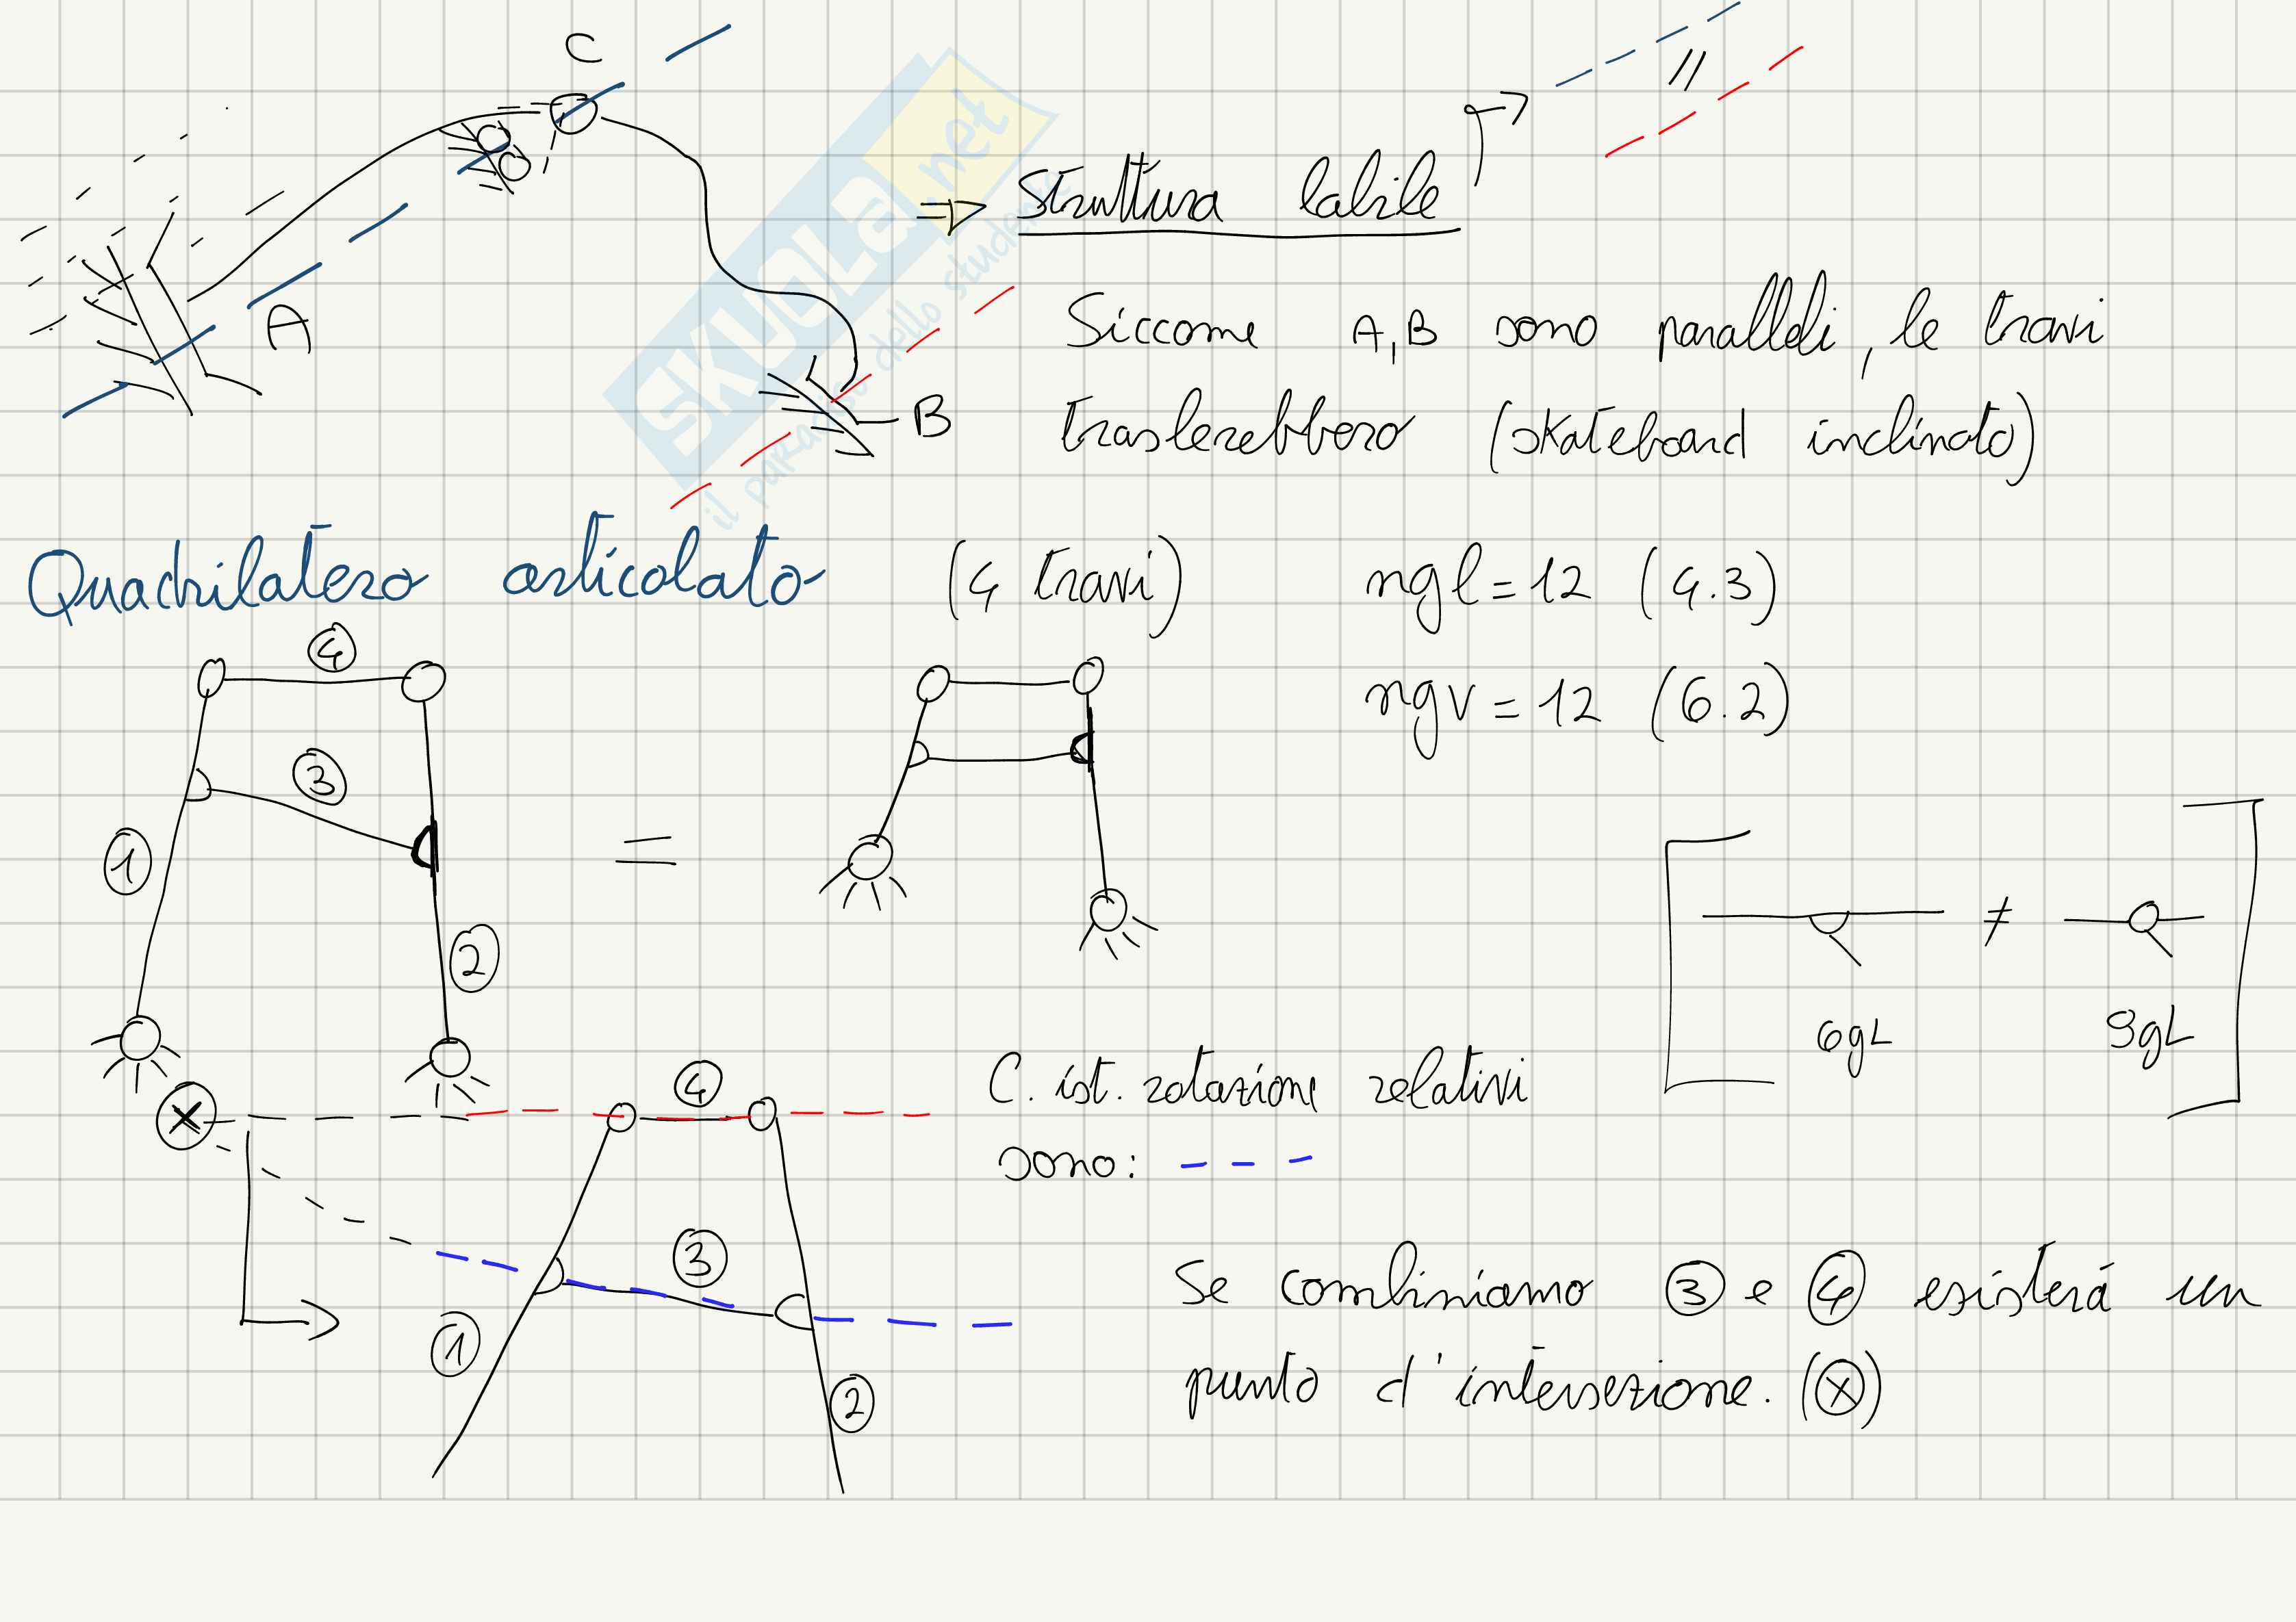 C
A
B
⇒ Struttura labile
//
Siccome A,B sono paralleli, le travi
traslerebbero (skateboard inclinato)
SKUOLA.net
il paradiso dello studente
Quadrilatero articolato (4 travi)
ngl = 12 (4.3)
ngv = 12 (6.2)
4
3
1
2
=
≠
6gL
9gL
4
3
1
2
C. ist. rotazione relativi
sono:
Se combiniamo ③ e ④ esisterá un
punto d'intersezione. (⊗)